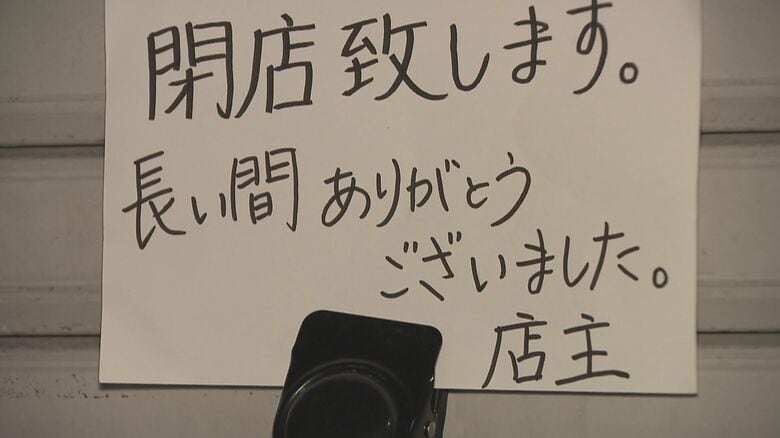 閉店致します。
長い間ありがとう
ございました。
店主